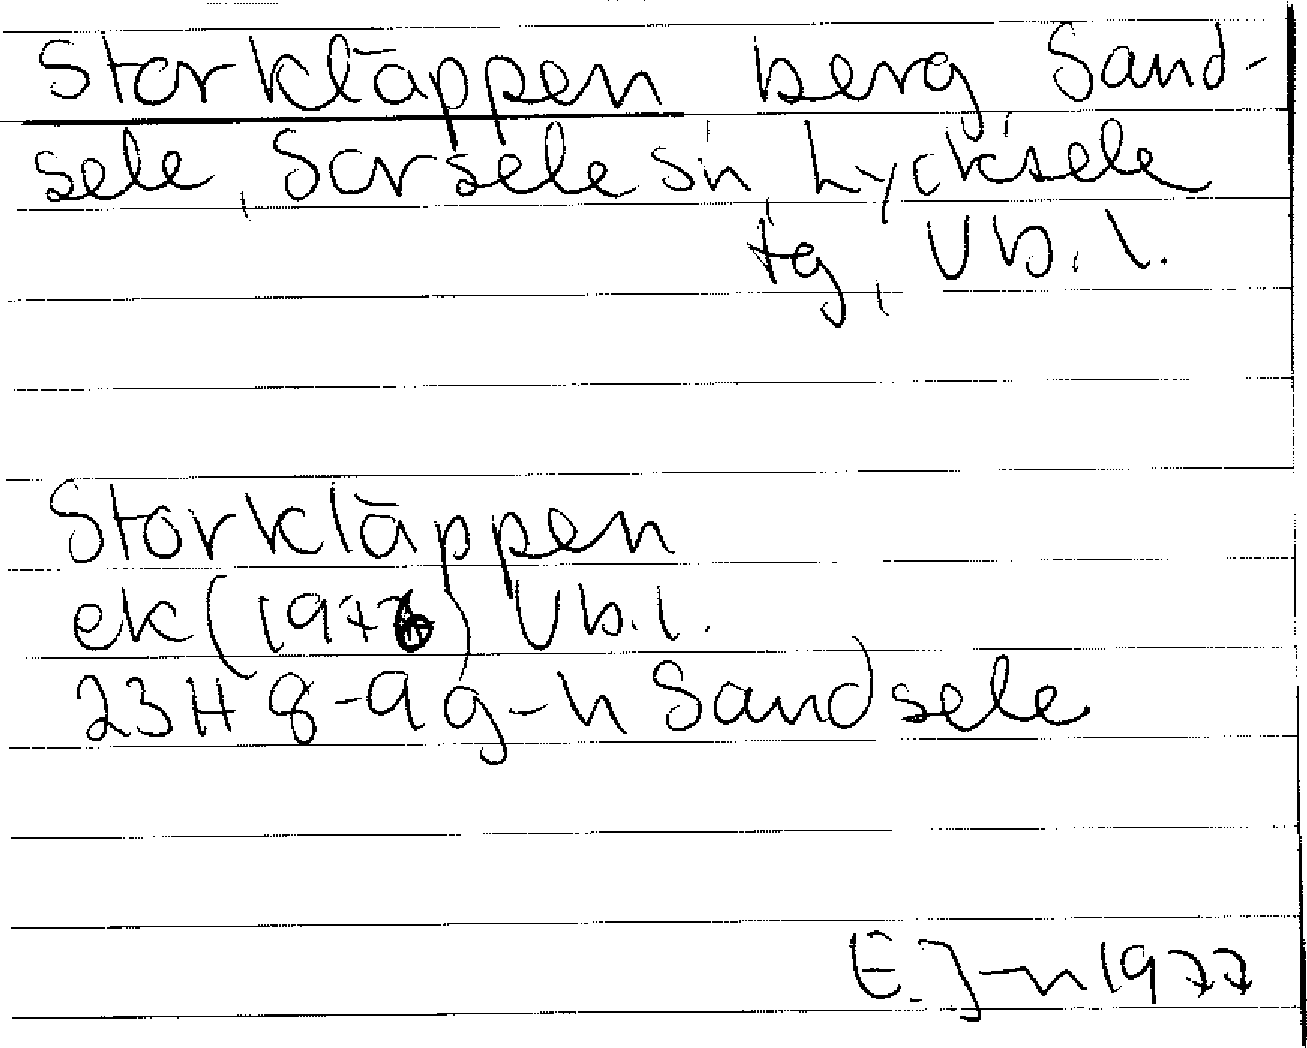 Storkläppen berg Sand-
sele, Sorsele sn Lycksele
tg, Vb.l.
Storkläppen
ek (1976) Vb.l.
23H 8-9 g-h Sandsele
E. J-n 1977